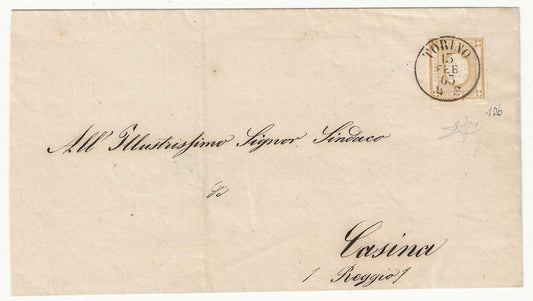 TORINO
15
FEB
63
10b
All' Illustrissimo Signor Sindaco
di
Casina
(Reggio)